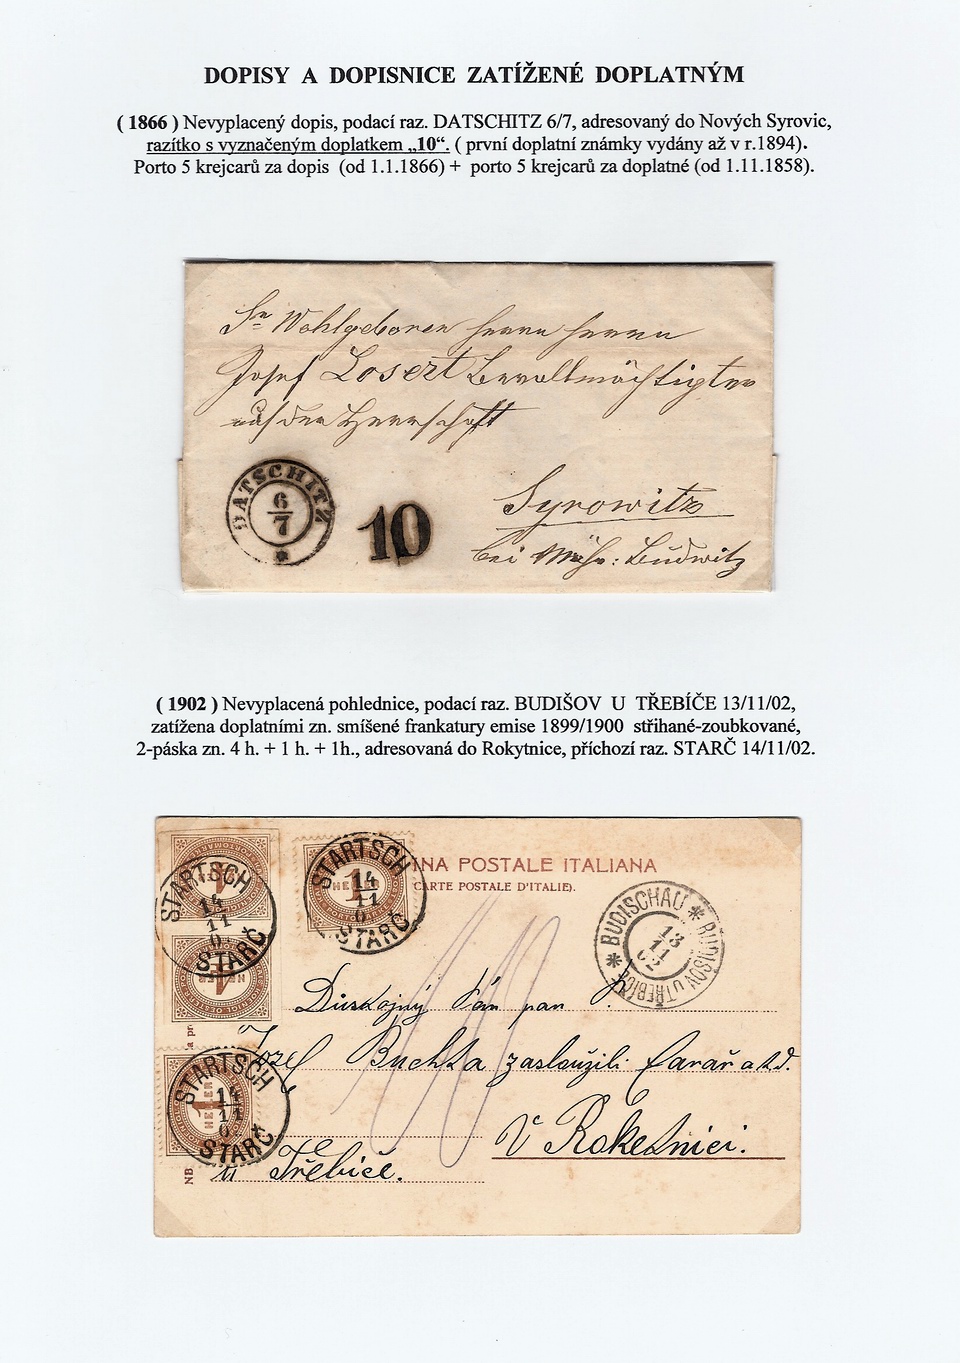 DOPISY A DOPISNICE ZATÍŽENÉ DOPLATNÝM
( 1866 ) Nevyplacený dopis, podací raz. DATSCHITZ 6/7, adresovaný do Nových Syrovic,
razítko s vyznačeným doplatkem „10“. ( první doplatní známky vydány až v r.1894).
Porto 5 krejcarů za dopis (od 1.1.1866) + porto 5 krejcarů za doplatné (od 1.11.1858).
Sr Wohlgeboren Herrn Herrn
Josef Losert Bevollmächtigter
auf der Herrschaft
DATSCHITZ
6/7
10
Syrowitz
bei Mähr: Budwitz
( 1902 ) Nevyplacená pohlednice, podací raz. BUDIŠOV U TŘEBÍČE 13/11/02,
zatížena doplatními zn. smíšené frankatury emise 1899/1900 střihané-zoubkované,
2-páska zn. 4 h. + 1 h. + 1h., adresovaná do Rokytnice, příchozí raz. STARČ 14/11/02.
INA POSTALE ITALIANA
CARTE POSTALE D'ITALIE).
STARTSCH
14
11
0
STARČ
STARTSCH
14
11
0
STARČ
BUDISCHAU * BUDIŠOV U TŘEBÍČE *
13
11
02
4
HELLER
1
10
Dustojný Pán pan P.
Jozef Buchta zasloužilí farář a t.d.
V Roketnici.
u Třebíče.
STARTSCH
14
11
0
STARČ
1
HELLER
NB